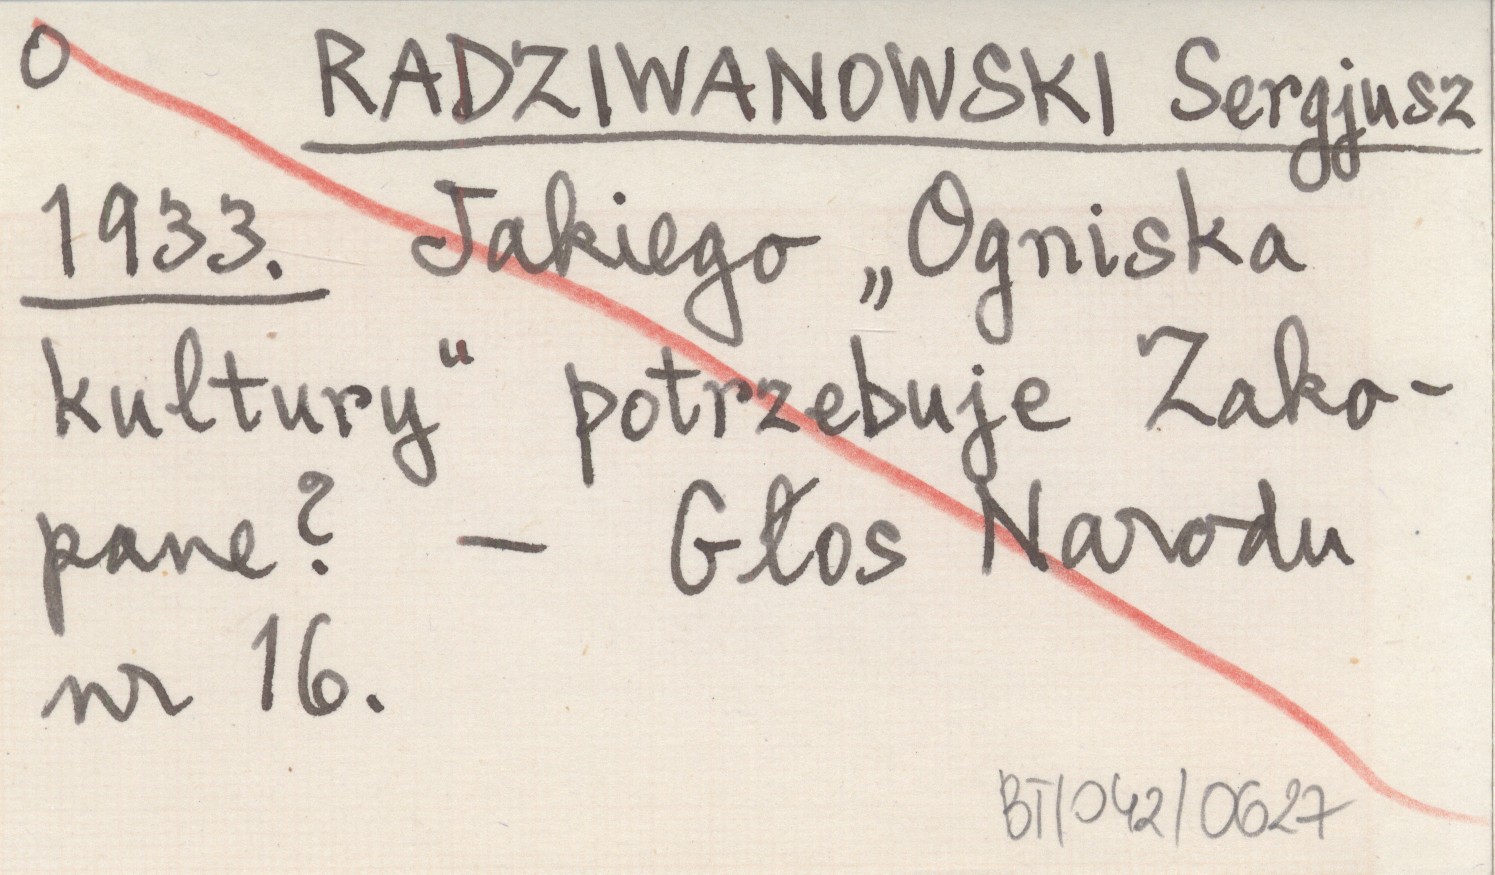 O RADZIWANOWSKI Sergjusz
1933. Jakiego „Ogniska
kultury“ potrzebuje Zako-
pane? — Głos Narodu
nr 16.
BT/042/0627